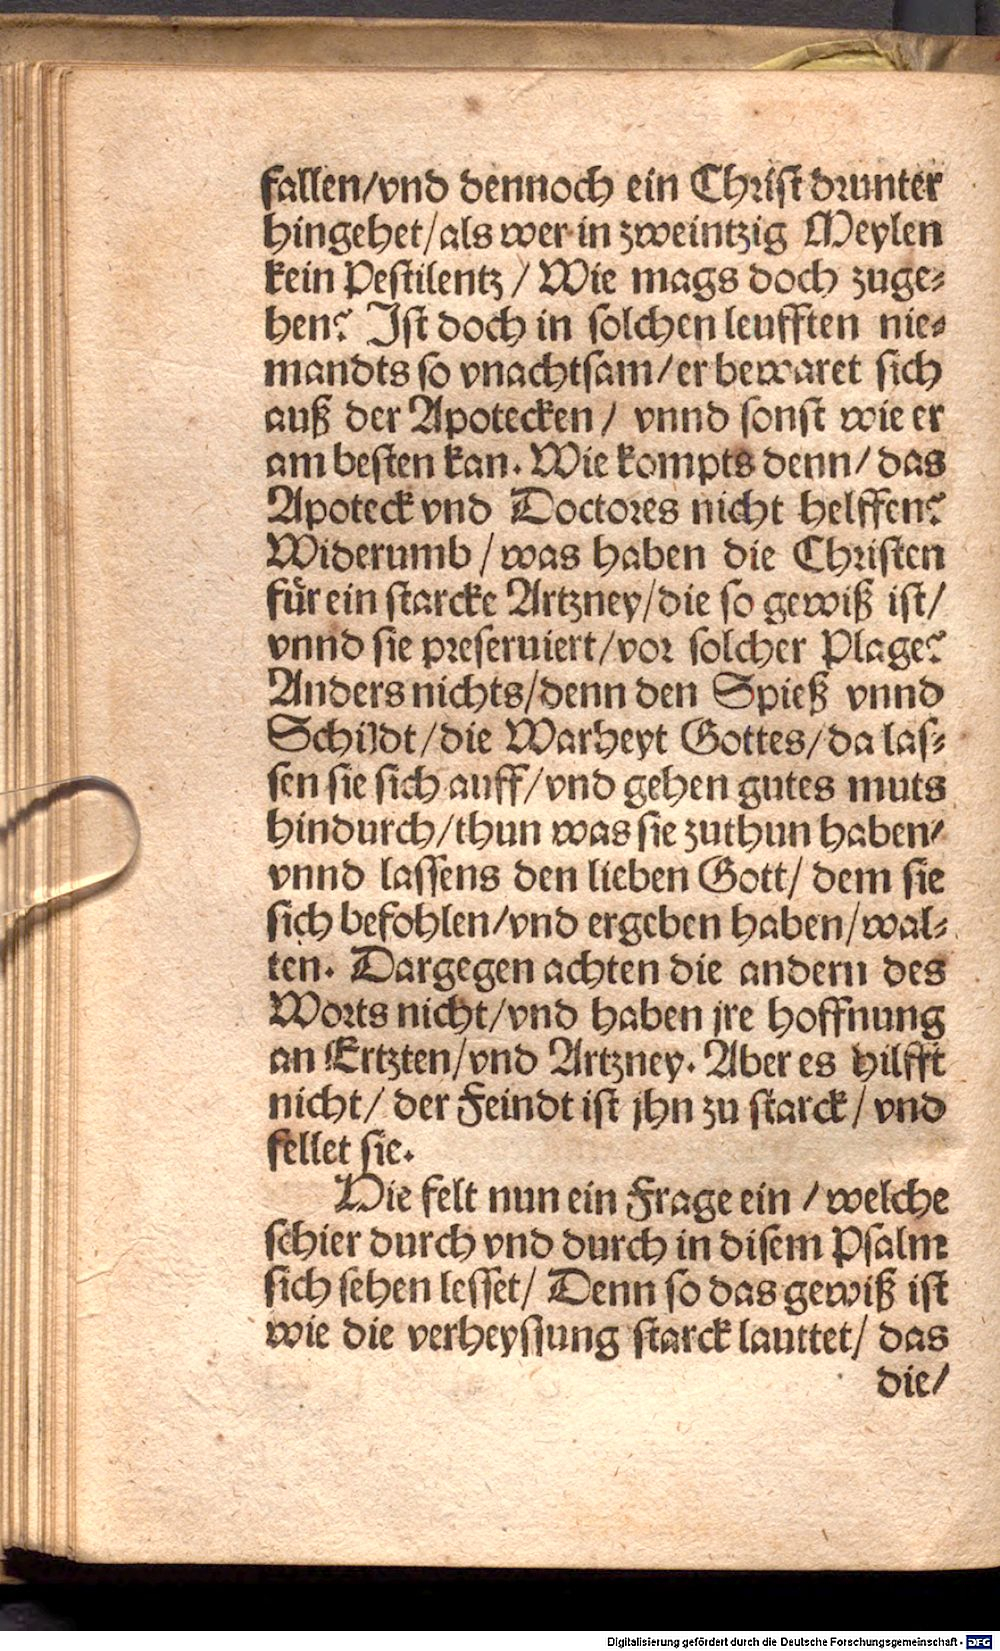 fallen/vnd dennoch ein Christ drunter
hingehet/als wer in zweintzig Meylen
kein Pestilentz / Wie mags doch zuge-
hen? Ist doch in solchen leufften nie-
mandts so vnachtsam/er bewaret sich
auß der Apotecken / vnnd sonst wie er
am besten kan. Wie kompts denn/ das
Apoteck vnd Doctores nicht helffen?
Widerumb / was haben die Christen
für ein starcke Artzney/die so gewiß ist/
vnnd sie preseruiert/vor solcher Plage?
Anders nichts/denn den Spieß vnnd
Schildt/die Warheyt Gottes/da las-
sen sie sich auff/vnd gehen gutes muts
hindurch/thun was sie zuthun haben/
vnnd lassens den lieben Gott/ dem sie
sich befohlen/vnd ergeben haben/wal-
ten. Dargegen achten die andern des
Worts nicht/vnd haben jre hoffnung
an Ertzten/vnd Artzney. Aber es hilfft
nicht/ der Feindt ist jhn zu starck/ vnd
fellet sie.
Hie felt nun ein Frage ein / welche
schier durch vnd durch in disem Psalm
sich sehen lesset/ Denn so das gewiß ist
wie die verheyssung starck lauttet/ das
die/
Digitalisierung gefördert durch die Deutsche Forschungsgemeinschaft - DFG